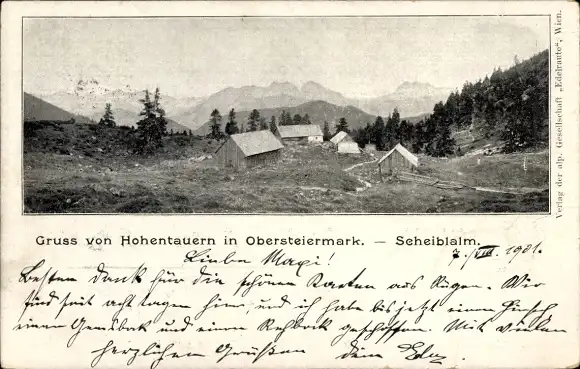 Verlag der alp. Gesellschaft „Edelraute“, Wien.
Gruss von Hohentauern in Obersteiermark. — Scheiblalm.
/VIII. 1901.
Liebe Maxi!
Besten Dank für die schönen Karten aus Rügen. Wir
sind seit acht Tagen hier, und ich habe bis jetzt einen Hirsch
einen Gemsbock und einen Rehbock geschossen. Mit vielen
herzlichen Grüßen dein